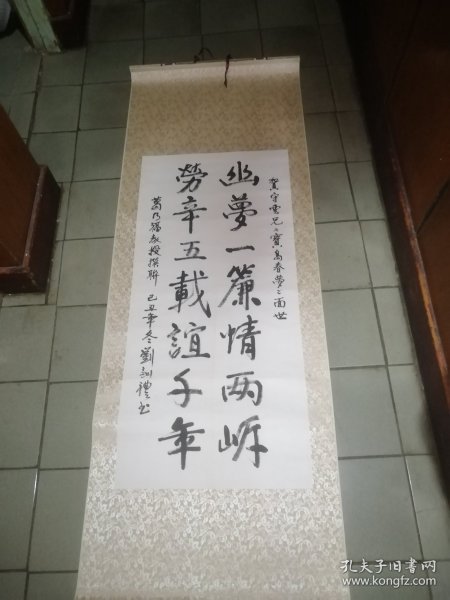 賀守雲兄《寶島春夢》面世
幽夢一簾情两岸
勞辛五載誼千年
葛乃福教授撰聯 己丑年冬劉 禮書
孔夫子旧书网
www.kongfz.com